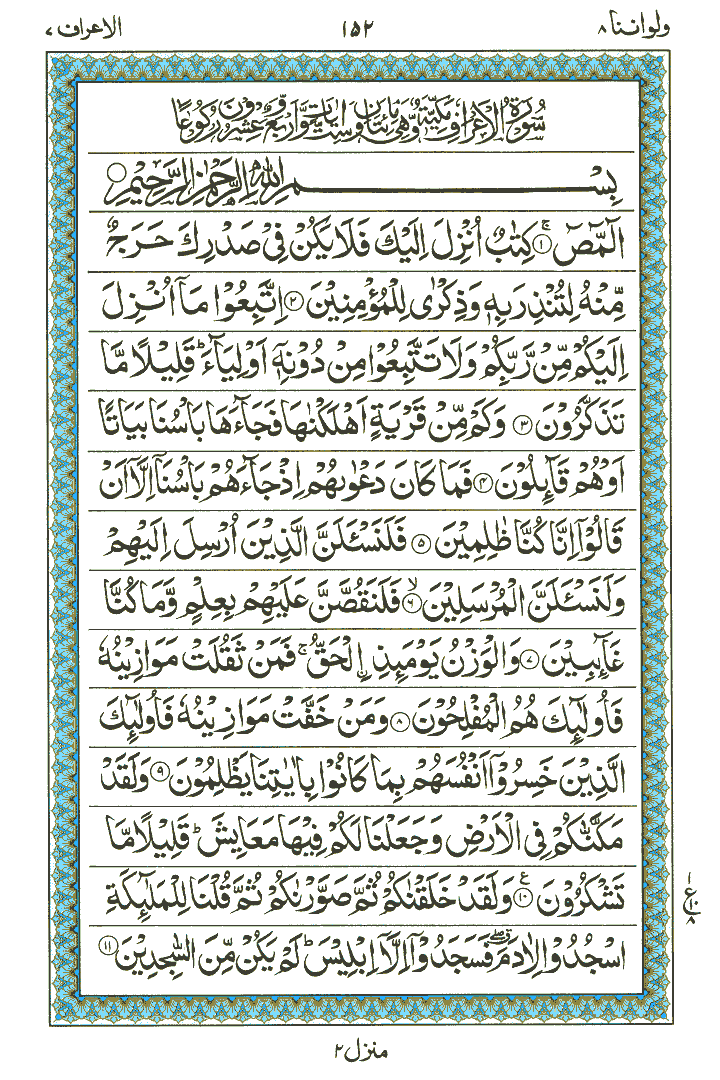 ولواننا ۸
۱۵۲
الاعراف ۷
سُوْرَةُ الْاَعْرَافِ مَكِّيَّةٌ وَّهِىَ مِائَتَانِ وَسِتُّ اٰيَاتٍ وَّاَرْبَعٌ وَّعِشْرُوْنَ رُكُوْعًا
بِسْمِ اللّٰهِ الرَّحْمٰنِ الرَّحِيْمِ ○
الٓمّٓصٓ ۚ‏﴿۱﴾ كِتٰبٌ اُنْزِلَ اِلَيْكَ فَلَا يَكُنْ فِىْ صَدْرِكَ حَرَجٌ
مِّنْهُ لِتُنْذِرَ بِهٖ وَذِكْرٰى لِلْمُؤْمِنِيْنَ ﴿۲﴾ اِتَّبِعُوْا مَاۤ اُنْزِلَ
اِلَيْكُمْ مِّنْ رَّبِّكُمْ وَلَا تَتَّبِعُوْا مِنْ دُوْنِهٖۤ اَوْلِيَآءَ ؕ قَلِيْلًا مَّا
تَذَكَّرُوْنَ ﴿۳﴾ وَكَمْ مِّنْ قَرْيَةٍ اَهْلَكْنٰهَا فَجَآءَهَا بَاْسُنَا بَيَاتًا
اَوْ هُمْ قَآئِلُوْنَ ﴿۴﴾ فَمَا كَانَ دَعْوٰٮهُمْ اِذْ جَآءَهُمْ بَاْسُنَاۤ اِلَّاۤ اَنْ
قَالُوْۤا اِنَّا كُنَّا ظٰلِمِيْنَ ﴿۵﴾ فَلَنَسْئَلَنَّ الَّذِيْنَ اُرْسِلَ اِلَيْهِمْ
وَلَنَسْئَلَنَّ الْمُرْسَلِيْنَ ۙ‏﴿۶﴾ فَلَنَقُصَّنَّ عَلَيْهِمْ بِعِلْمٍ وَّمَا كُنَّا
غَآئِبِيْنَ ﴿۷﴾ وَالْوَزْنُ يَوْمَئِذِ ۨالْحَقُّ ۚ فَمَنْ ثَقُلَتْ مَوَازِيْنُهٗ
فَاُولٰٓئِكَ هُمُ الْمُفْلِحُوْنَ ﴿۸﴾ وَمَنْ خَفَّتْ مَوَازِيْنُهٗ فَاُولٰٓئِكَ
الَّذِيْنَ خَسِرُوْۤا اَنْفُسَهُمْ بِمَا كَانُوْا بِاٰيٰتِنَا يَظْلِمُوْنَ ﴿۹﴾ وَلَقَدْ
مَكَّنّٰكُمْ فِى الْاَرْضِ وَجَعَلْنَا لَكُمْ فِيْهَا مَعَايِشَ ؕ قَلِيْلًا مَّا
تَشْكُرُوْنَ ﴿۱۰﴾ وَلَقَدْ خَلَقْنٰكُمْ ثُمَّ صَوَّرْنٰكُمْ ثُمَّ قُلْنَا لِلْمَلٰٓئِكَةِ
۱
ع ۱۰
۸
اسْجُدُوْا لِاٰدَمَ ۖ فَسَجَدُوْۤا اِلَّاۤ اِبْلِيْسَ ؕ لَمْ يَكُنْ مِّنَ السّٰجِدِيْنَ ﴿۱۱﴾
منزل ۲